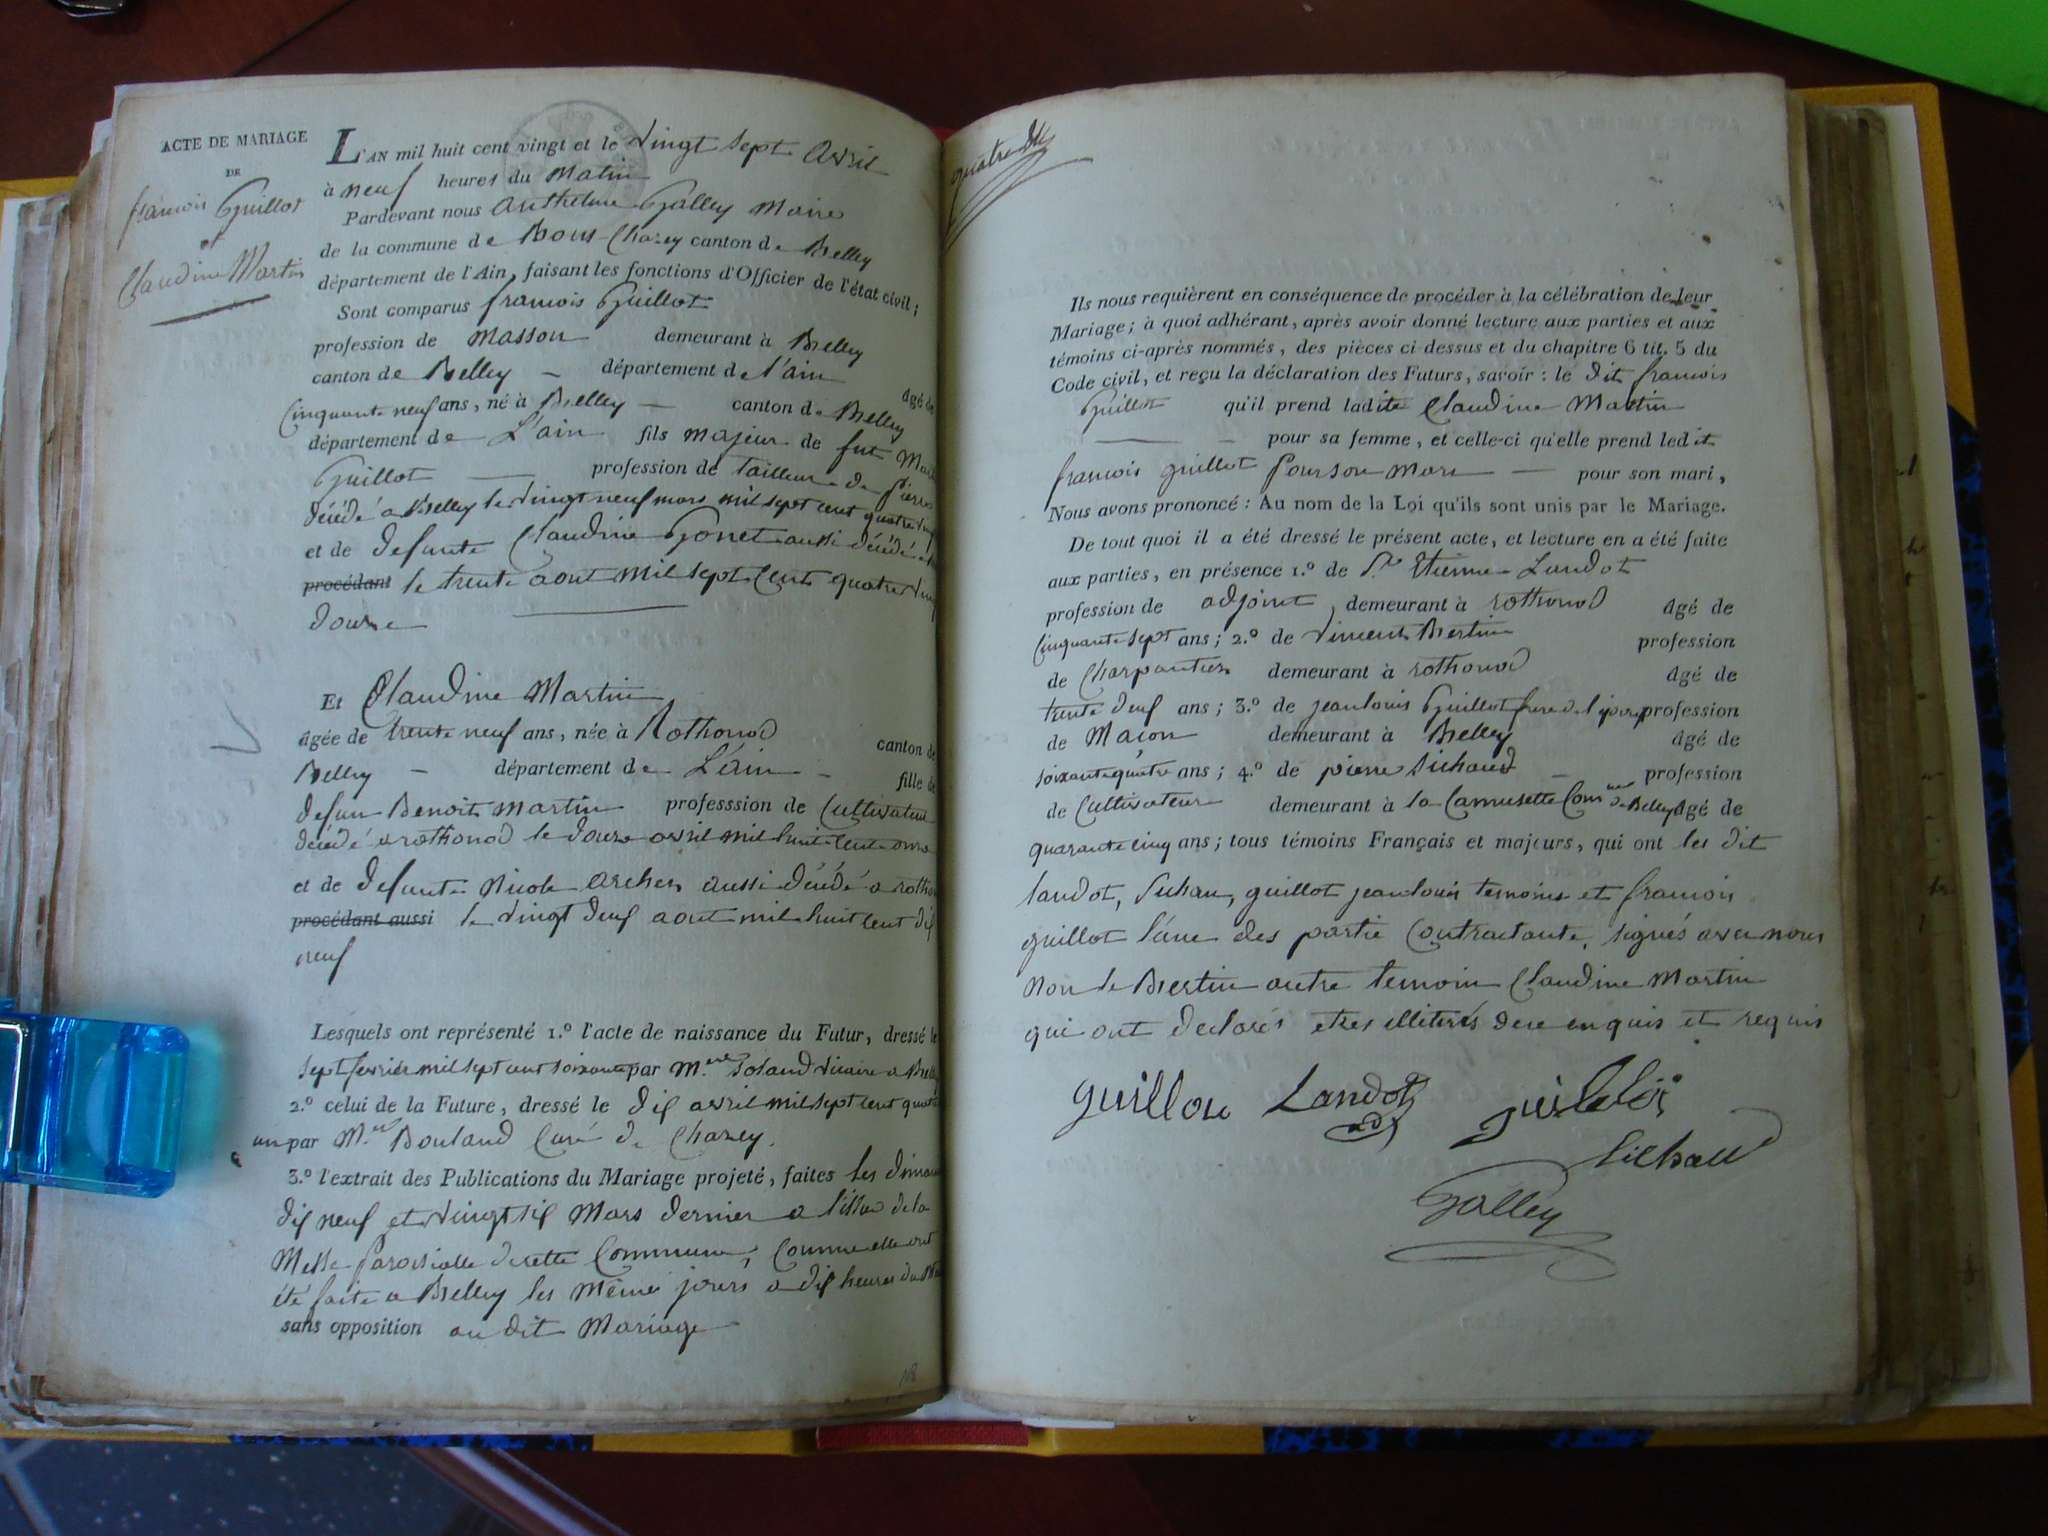 ACTE DE MARIAGE
DE
francois Guillot
et
Claudine Martin
L'AN mil huit cent vingt et le vingt sept avril
à neuf heures du matin
Pardevant nous anthelme Galley maire
de la commune de Bons-Chazey canton de Belley
département de l'Ain, faisant les fonctions d'Officier de l'état civil;
Sont comparus francois Guillot
profession de masson demeurant à Belley
canton de Belley département de l'ain âgé de
cinquante neuf ans, né à Belley canton de Belley
département de L'ain fils majeur de fut
Guillot profession de tailleur de pierre
décédé a Belley le vingt neuf mars mil sept cent quatre vingt
et de defunte Claudine Gonet aussi décédé
procédant le trente aout mil sept cent quatre vingt
douze
Et Claudine Martin
âgée de trente neuf ans, née à Rothonod canton de
Belley département de L'ain fille de
defun Benoit martin professsion de Cultivateur
décédé a rothonod le douze avril mil huit cent onze
et de defunte Nicole archer aussi décédé a rothon
procédant aussi le vingt deuf aout mil huit cent dif
neuf
Lesquels ont représenté 1.º l'acte de naissance du Futur, dressé le
sept fevrier mil sept cent soixante par M. vicaire a Belley
2.º celui de la Future, dressé le dif avril mil sept cent quatre
un par M. Bouland Curé de Chazey.
3.º l'extrait des Publications du Mariage projeté, faites les diman
dif neuf et vingt sif mars dernier a l'issue de la
Messe paroisialle de cette Commune, comme elle ont
été faite a Belley les même jours a dif heures du
sans opposition au dit mariage
118
quatre
Ils nous requièrent en conséquence de procéder à la célébration de leur
Mariage; à quoi adhérant, après avoir donné lecture aux parties et aux
témoins ci-après nommés, des pièces ci dessus et du chapitre 6 tit. 5 du
Code civil, et reçu la déclaration des Futurs, savoir : le dit francois
Guillot qu'il prend ladite Claudine Martin
pour sa femme, et celle-ci qu'elle prend ledit
francois guillot pour son mari pour son mari,
Nous avons prononcé : Au nom de la Loi qu'ils sont unis par le Mariage.
De tout quoi il a été dressé le présent acte, et lecture en a été faite
aux parties, en présence 1.º de Sr Etienne Landot
profession de adjoint demeurant à rothonod âgé de
cinquante sept ans; 2.º de vincent Bertin profession
de Charpantier demeurant à rothonod âgé de
trente deuf ans; 3.º de jean louis Guillot frere de l'epouf profession
de Macon demeurant à Belley âgé de
soixante quatre ans; 4.º de pierre sichaud profession
de Cultivateur demeurant à la Camusette Comune de Belley âgé de
quarante cinq ans; tous témoins Français et majeurs, qui ont les dit
landot, Sichau, guillot jean louis temoins et francois
guillot l'une des partie Contractante, signés avec nous
non le Bertin autre temoin Claudine Martin
qui ont declarés etres illitirés de ce enquis et requis
guillou Landot guillot
adj
Sichaud
Galley